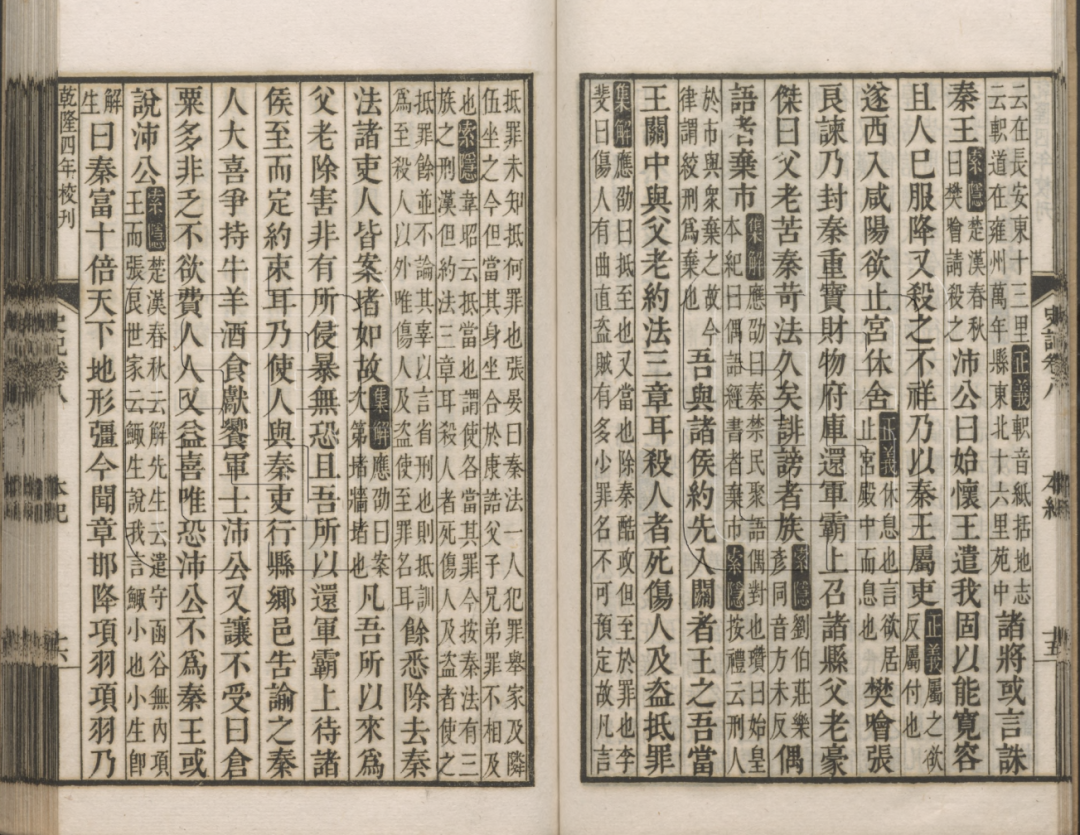 云在長安東十三里正義軹音紙括地志
云軹道在雍州萬年縣東北十六里苑中
諸將或言誅
秦王
索隱楚漢春秋
曰樊噲請殺之
沛公曰始懷王遣我固以能寬容
且人已服降又殺之不祥乃以秦王屬吏
正義屬之欲
反屬付也
遂西入咸陽欲止宮休舍
正義休息也言欲居
止宮殿中而息也
樊噲張
良諫乃封秦重寶財物府庫還軍霸上召諸縣父老豪
傑曰父老苦秦苛法久矣誹謗者族
索隱劉伯莊樂
彥同音方未反
偶
語者棄市
集解應劭曰秦禁民聚語偶對也瓚曰始皇
本紀曰偶語經書者棄市索隱按禮云刑人
於市與衆棄之故今
律謂絞刑爲棄也
吾與諸侯約先入關者王之吾當
王關中與父老約法三章耳殺人者死傷人及盜抵罪
集解應劭曰抵至也又當也除秦酷政但至於罪也李
斐曰傷人有曲直盜賊有多少罪名不可預定故凡言
史記卷八
本紀
抵罪未知抵何罪也張晏曰秦法一人犯罪舉家及隣
伍坐之今但當其身坐合於康誥父子兄弟罪不相及
也索隱韋昭云抵當也謂使各當其罪今按秦法有三
族之刑漢但約法三章耳殺人者死傷人及盜者使之
抵罪餘並不論其辜以言省刑也則抵訓
爲至殺人以外唯傷人及盜使至罪名耳
餘悉除去秦
法諸吏人皆案堵如故
集解應劭曰案
次第堵牆堵也
凡吾所以來爲
父老除害非有所侵暴無恐且吾所以還軍霸上待諸
侯至而定約束耳乃使人與秦吏行縣鄉邑告諭之秦
人大喜爭持牛羊酒食獻饗軍士沛公又讓不受曰倉
粟多非乏不欲費人人又益喜唯恐沛公不爲秦王或
說沛公
索隱楚漢春秋云解先生云遣守函谷無內項
王而張良世家云鯫生說我言鯫小也小生卽
解
生
曰秦富十倍天下地形彊今聞章邯降項羽項羽乃
乾隆四年校刊
史記卷八
本紀